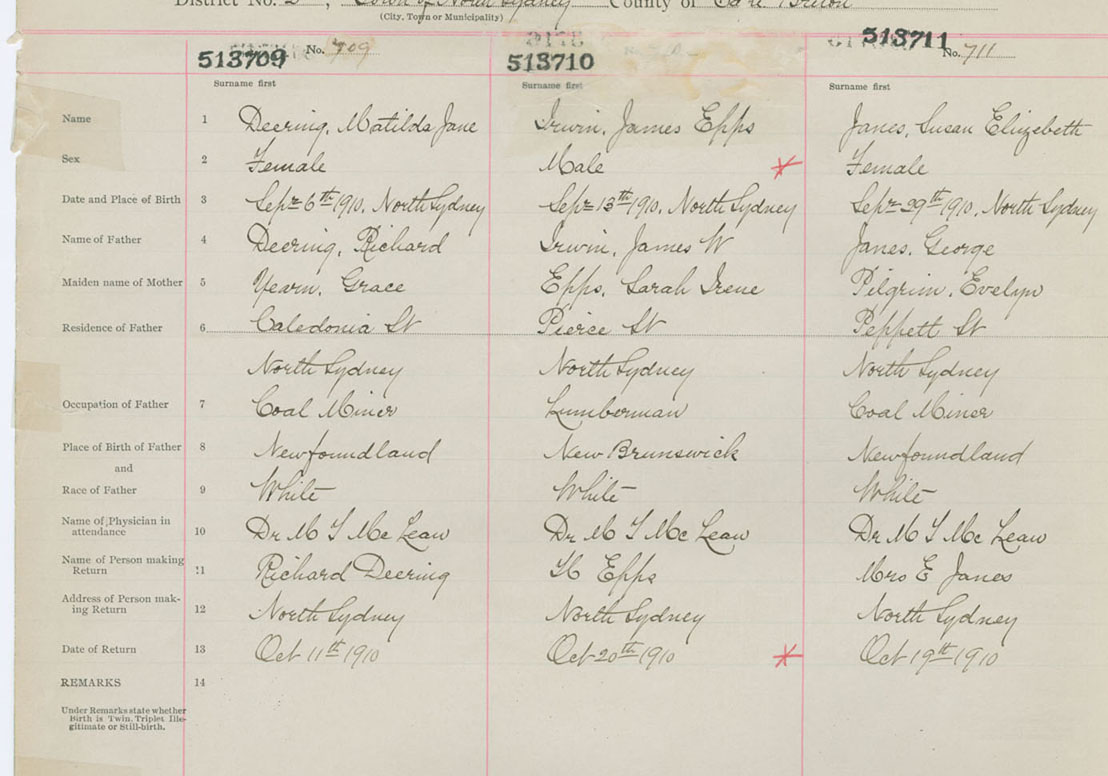 District No. 2, Town of North Sydney County of Cape Breton
(City, Town or Municipality)
513709 No. 709 513710 513711 No. 711
Surname first Surname first Surname first
Name 1 Deering, Matilda Jane Irwin, James Epps Janes, Susan Elizebeth
Sex 2 Female Male Female
Date and Place of Birth 3 Sepr 6th 1910, North Sydney Sepr 13th 1910, North Sydney Sepr 29th 1910, North Sydney
Name of Father 4 Deering, Richard Irwin, James W Janes, George
Maiden name of Mother 5 Yearn, Grace Epps, Sarah Irene Pilgrim, Evelyn
Residence of Father 6 Caledonia St Pierce St Peppett St
North Sydney North Sydney North Sydney
Occupation of Father 7 Coal Miner Lumberman Coal Miner
Place of Birth of Father 8 Newfoundland New Brunswick Newfoundland
and
Race of Father 9 White White White
Name of Physician in
attendance 10 Dr M T McLean Dr M T McLean Dr M T McLean
Name of Person making
Return 11 Richard Deering Epps Mrs E Janes
Address of Person mak-
ing Return 12 North Sydney North Sydney North Sydney
Date of Return 13 Oct 11th 1910 Oct 20th 1910 Oct 19th 1910
REMARKS 14
Under Remarks state whether
Birth is Twin, Triplet, Ille-
gitimate or Still-birth.